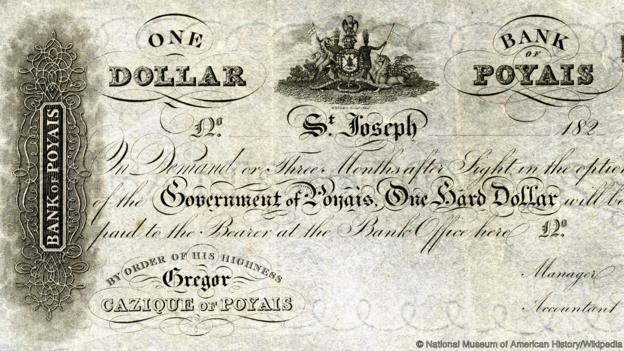 ONE
DOLLAR
BANK
OF
POYAIS
BANK OF POYAIS
No. St. Joseph 182
On Demand, or Three Months after Sight in the option
of the Government of Poyais, One Hard Dollar will be
paid to the Bearer at the Bank Office here No.
BY ORDER OF HIS HIGHNESS
Gregor
CAZIQUE OF POYAIS
Manager
Accountant
© National Museum of American History/Wikipedia